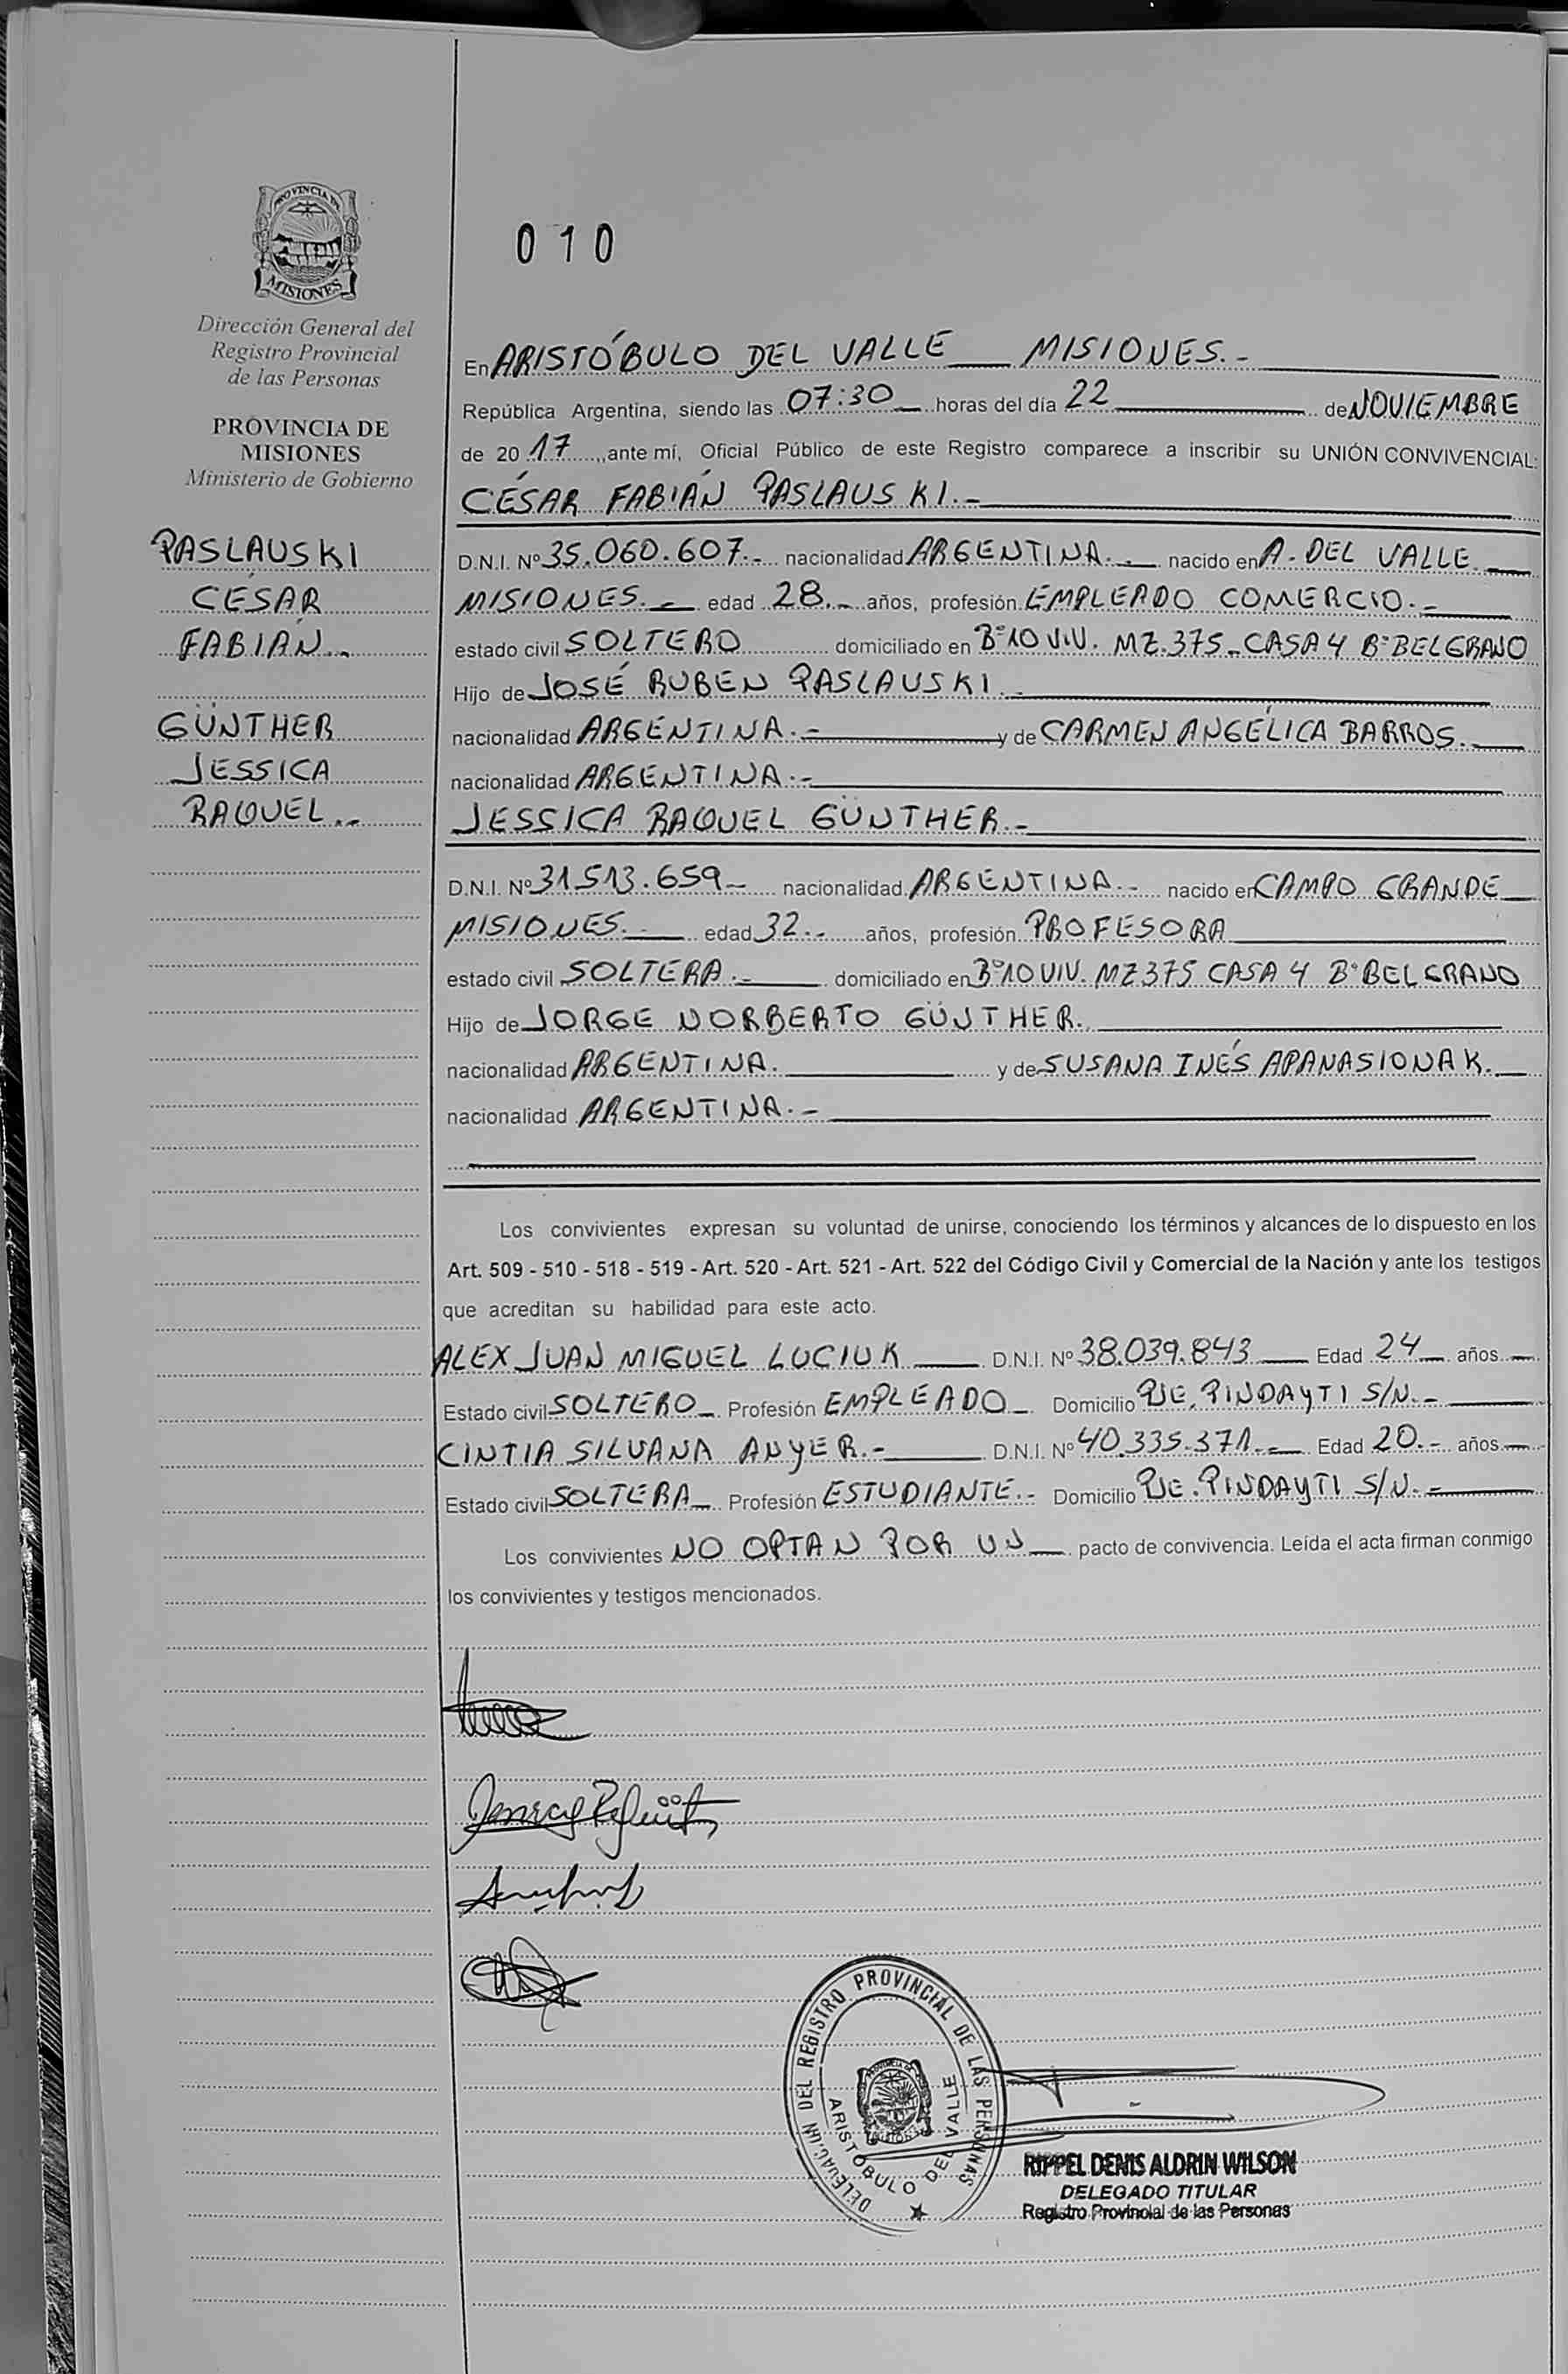 PROVINCIA DE
MISIONES
Dirección General del
Registro Provincial
de las Personas
PROVINCIA DE
MISIONES
Ministerio de Gobierno
PASLAUSKI
CÉSAR
FABIÁN.-
GÜNTHER
JESSICA
RAQUEL.-
010
En ARISTÓBULO DEL VALLE MISIONES.-
República Argentina, siendo las 07:30 horas del día 22 de NOVIEMBRE
de 2017, ante mí, Oficial Público de este Registro comparece a inscribir su UNIÓN CONVIVENCIAL:
CÉSAR FABIÁN PASLAUSKI.-
D.N.I. Nº 35.060.607.- nacionalidad ARGENTINA.- nacido en A. DEL VALLE
MISIONES.- edad 28.- años, profesión EMPLEADO COMERCIO.-
estado civil SOLTERO domiciliado en Bº 10 VIV. MZ.375-CASA 4 Bº BELGRANO
Hijo de JOSÉ RUBEN PASLAUSKI.-
nacionalidad ARGENTINA.- y de CARMEN ANGÉLICA BARROS.-
nacionalidad ARGENTINA.-
JESSICA RAQUEL GÜNTHER.-
D.N.I. Nº 31.513.659- nacionalidad ARGENTINA.- nacido en CAMPO GRANDE
MISIONES. edad 32.- años, profesión PROFESORA
estado civil SOLTERA.- domiciliado en Bº 10 VIV. MZ 375 CASA 4 Bº BELGRANO
Hijo de JORGE NORBERTO GÜNTHER.
nacionalidad ARGENTINA. y de SUSANA INÉS APANASIONAK.
nacionalidad ARGENTINA.-
Los convivientes expresan su voluntad de unirse, conociendo los términos y alcances de lo dispuesto en los
Art. 509 - 510 - 518 - 519 - Art. 520 - Art. 521 - Art. 522 del Código Civil y Comercial de la Nación y ante los testigos
que acreditan su habilidad para este acto.
ALEX JUAN MIGUEL LUCIUK D.N.I. Nº 38.039.843 Edad 24 años
Estado civil SOLTERO Profesión EMPLEADO Domicilio PJE. PINDAYTI S/N.-
CINTIA SILVANA ANYER.- D.N.I. Nº 40.335.371.- Edad 20.- años
Estado civil SOLTERA Profesión ESTUDIANTE.- Domicilio PJE. PINDAYTI S/N.-
Los convivientes NO OPTAN POR UN pacto de convivencia. Leída el acta firman conmigo
los convivientes y testigos mencionados.
DELEGACIÓN DEL REGISTRO PROVINCIAL DE LAS PERSONAS
ARISTÓBULO DEL VALLE
RIPPEL DENIS ALDRIN WILSON
DELEGADO TITULAR
Registro Provincial de las Personas